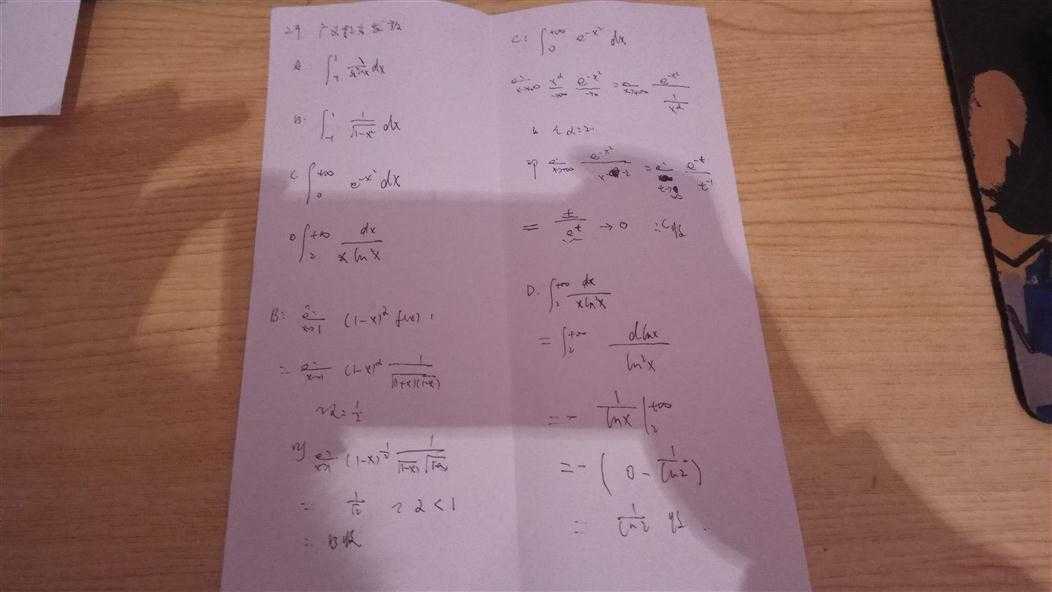 A. ∫ dx
B. ∫_{-1}^{1} 1/√(1-x²) dx
C. ∫_0^{+∞} e^{-x²} dx
D. ∫_2^{+∞} dx/(x ln²x)
B: lim_{x→1} (1-x)^α f(x)
= lim_{x→1} (1-x)^α 1/√((1+x)(1-x))
α=1/2
lim_{x→1} (1-x)^{1/2} 1/(√(1-x) √(1+x))
= 1/√2 α<1
∴ B收
C: ∫_0^{+∞} e^{-x²} dx
lim_{x→+∞} x^α e^{-x²} = lim_{x→+∞} e^{-x²}/(1/x^α)
α=2
则 lim_{x→+∞} e^{-x²}/x^{-2} = lim e^{-t}/t^{-1}
= t/e^t →0 ∴C收
D. ∫_2^{+∞} dx/(x ln²x)
= ∫_2^{+∞} d lnx/ln²x
= - 1/lnx |_2^{+∞}
= - (0 - 1/ln2)
= 1/ln2 收.